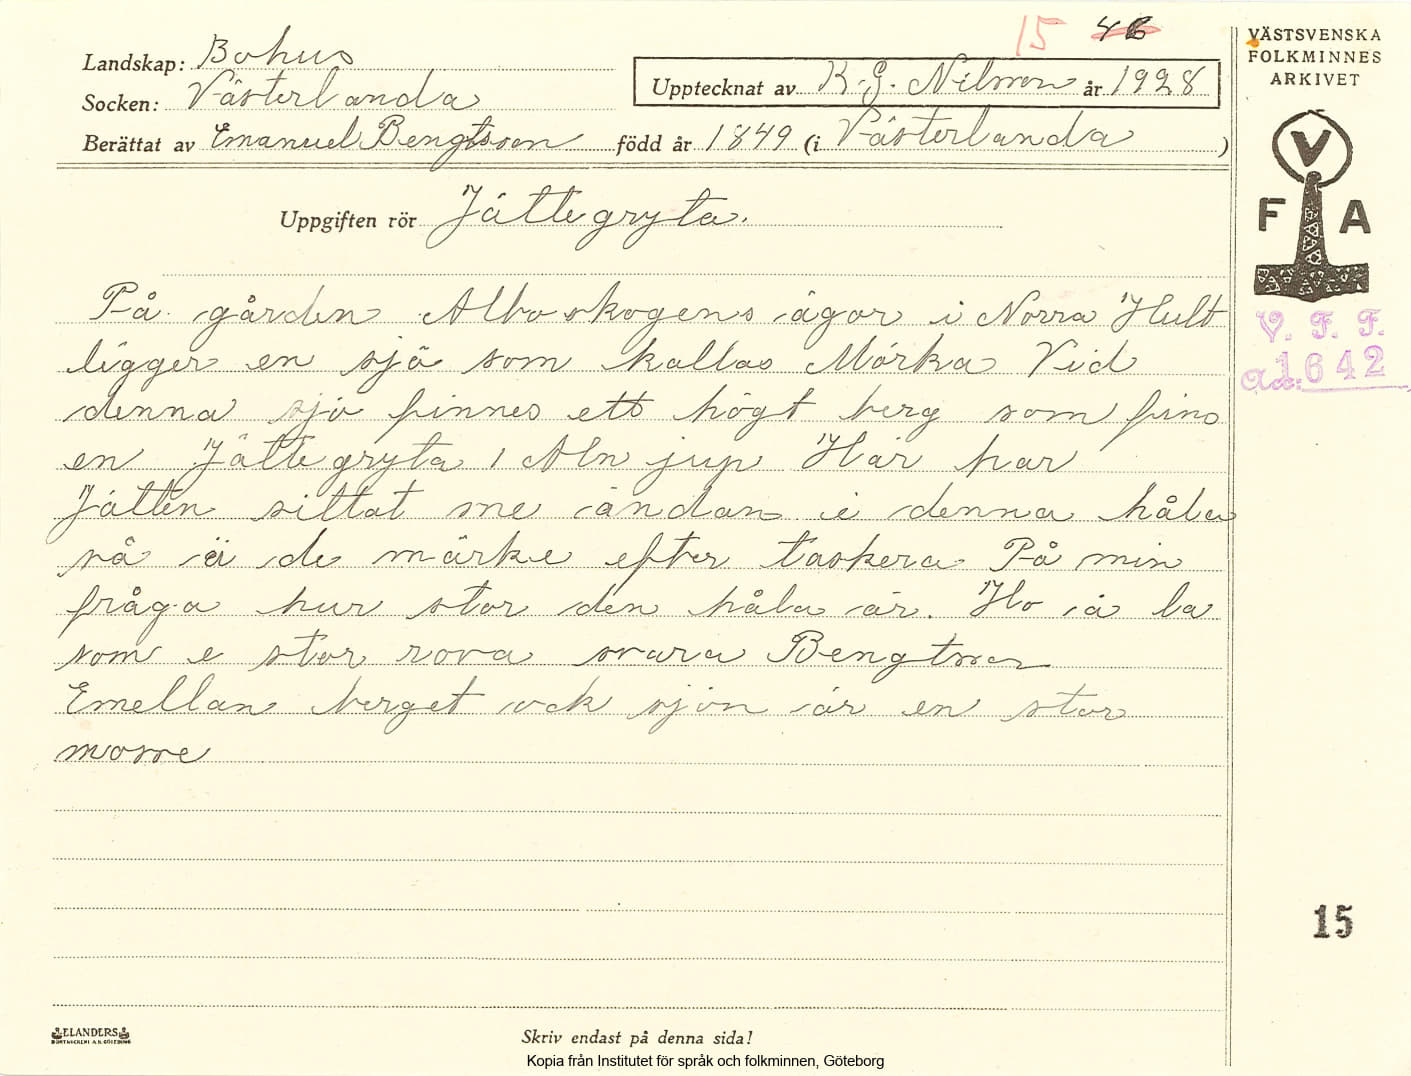 15 46
VÄSTSVENSKA
FOLKMINNES
ARKIVET
Landskap: Bohus
Socken: Västerlanda
Upptecknat av K. G. Nilsson år 1928
Berättat av Emanuel Bengtsson född år 1849 (i Västerlanda )
V
F A
Uppgiften rör Jättegryta.
På gården Alboskogens ägor i Norra Hult
ligger en sjö som kallas Mörka Vid
denna sjö finnes ett högt berg som fins
en Jättegryta 1 Aln jup Här har
Jätten sittat me ändan i denna håla
så ä de märke efter taskera På min
fråga hur stor den håla är. Ho ä la
som e stor rova svara Bengtsson
Emellan berget ock sjön är en stor
mosse
V. F. F.
Acc: 1642
15
ELANDERS
BOKTRYCKERI A.B. GÖTEBORG
Skriv endast på denna sida!
Kopia från Institutet för språk och folkminnen, Göteborg